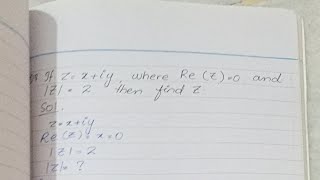 If z = x + iy, where Re(z) = 0 and
|z| = 2 then find z.
Sol.
z = x + iy
Re(z) = x = 0
|z| = 2
|z| = ?